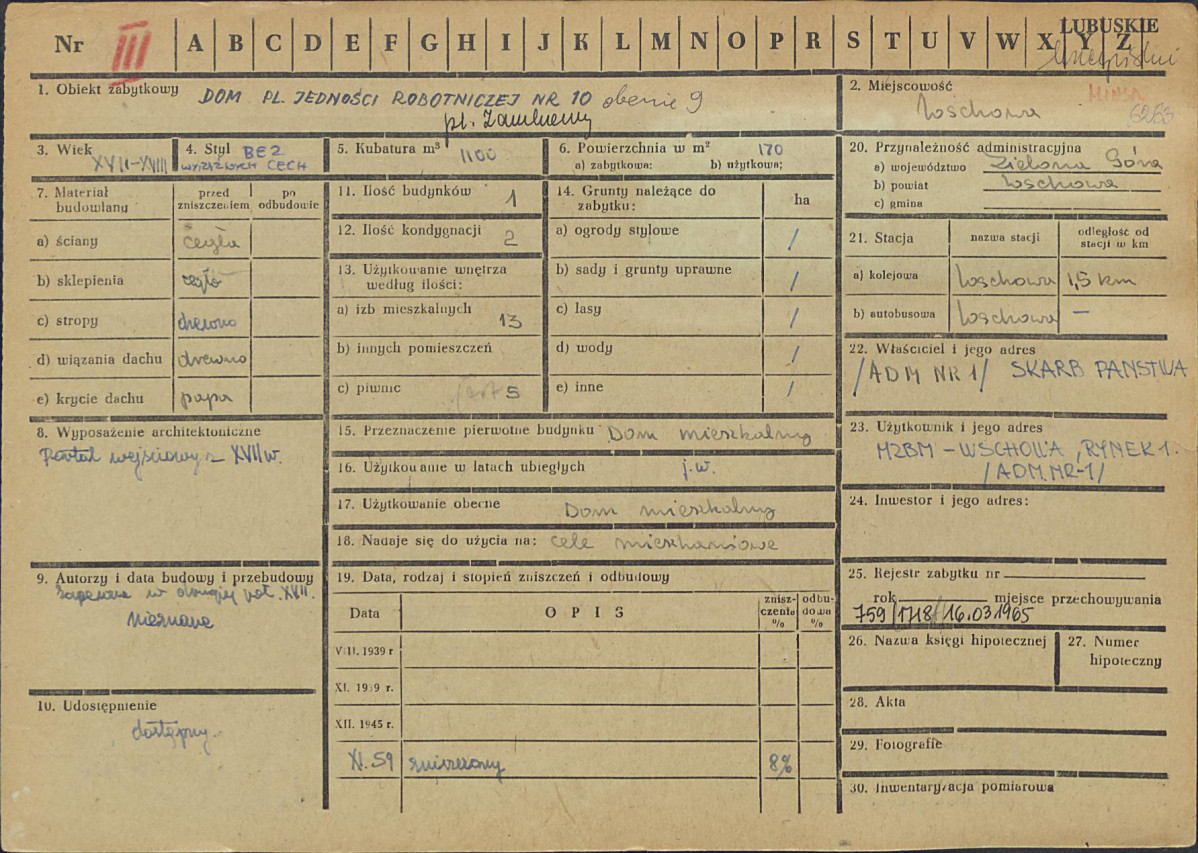 Nr III A B C D E F G H I J K L M N O P R S T U V W X Y Z
LUBUSKIE
1. Obiekt zabytkowy DOM PL. JEDNOŚCI ROBOTNICZEJ NR 10 obecnie 9
pl. Zamkowy
2. Miejscowość
Wschowa
3. Wiek
XVII-XVIII
4. Styl BEZ
WYRAZNYCH CECH
5. Kubatura m³ 1100
6. Powierzchnia w m² 170
a) zabytkowa: b) użytkowa:
7. Materiał budowlany
przed zniszczeniem
po odbudowie
a) ściany cegła
b) sklepienia cegła
c) stropy drewno
d) wiązania dachu drewno
e) krycie dachu papa
8. Wyposażenie architektoniczne
Portal wejściowy z XVII w.
9. Autorzy i data budowy i przebudowy
w drugiej poł. XVII.
nieznane
10. Udostępnienie
dostępny.
11. Ilość budynków 1
12. Ilość kondygnacji 2
13. Użytkowanie wnętrza
według ilości:
a) izb mieszkalnych 13
b) innych pomieszczeń
c) piwnic 5
14. Grunty należące do
zabytku: ha
a) ogrody stylowe /
b) sady i grunty uprawne /
c) lasy /
d) wody /
e) inne /
15. Przeznaczenie pierwotne budynku Dom mieszkalny
16. Użytkowanie w latach ubiegłych j.w.
17. Użytkowanie obecne Dom mieszkalny
18. Nadaje się do użycia na: cele mieszkaniowe
19. Data, rodzaj i stopień zniszczeń i odbudowy
Data OPIS zniszczenia % odbudowa %
VIII. 1939 r
XI. 1939 r.
XII. 1945 r.
XI. 59 zniszczony 8%
20. Przynależność administracyjna
a) województwo Zielona Góra
b) powiat Wschowa
c) gmina
21. Stacja nazwa stacji odległość od stacji w km
a) kolejowa Wschowa 1,5 km
b) autobusowa Wschowa —
22. Właściciel i jego adres
/ADM NR 1/ SKARB PAŃSTWA
23. Użytkownik i jego adres
MZBM – WSCHOWA, RYNEK 1.
/ADM. NR-1/
24. Inwestor i jego adres:
25. Rejestr zabytku nr
rok miejsce przechowywania
759/1718/16.03.1965
26. Nazwa księgi hipotecznej
27. Numer
hipoteczny
28. Akta
29. Fotografie
30. Inwentaryzacja pomiarowa